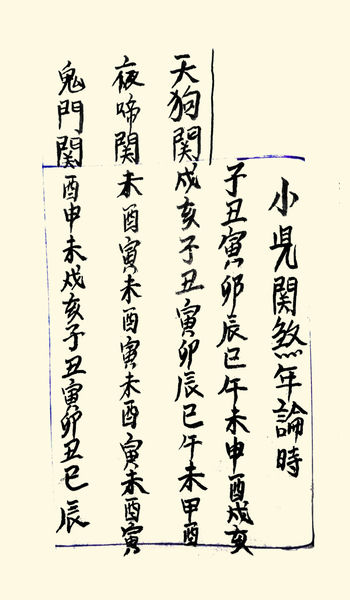 小児関煞年論時
子丑寅卯辰巳午未申酉戌亥
天狗関戌亥子丑寅卯辰巳午未甲酉
夜啼関未酉寅未酉寅未酉寅未酉寅
鬼門関酉申未戌亥子丑寅卯丑巳辰